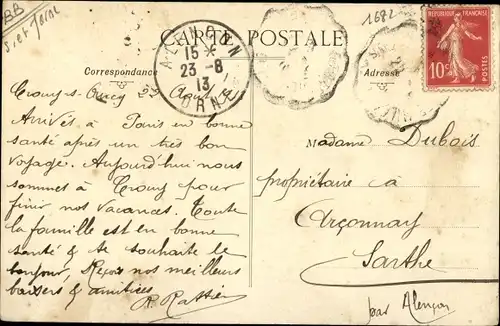 BB
1682
CARTE POSTALE
Correspondance
Adresse
ALENÇON
15 *
23 - 8
13
ORNE
REPUBLIQUE FRANÇAISE
10c
Crouy-s-Ourcq 22 Août 13
Arrivés à Paris en bonne
santé après un très bon
voyage. Aujourd'hui nous
sommes à Crouy pour
finir nos vacances. Toute
la famille est en bonne
santé & te souhaite le
bonjour, Reçois nos meilleurs
baisers & amitiés
Madame Dubois
propriétaire à
Arçonnay
Sarthe
par Alençon